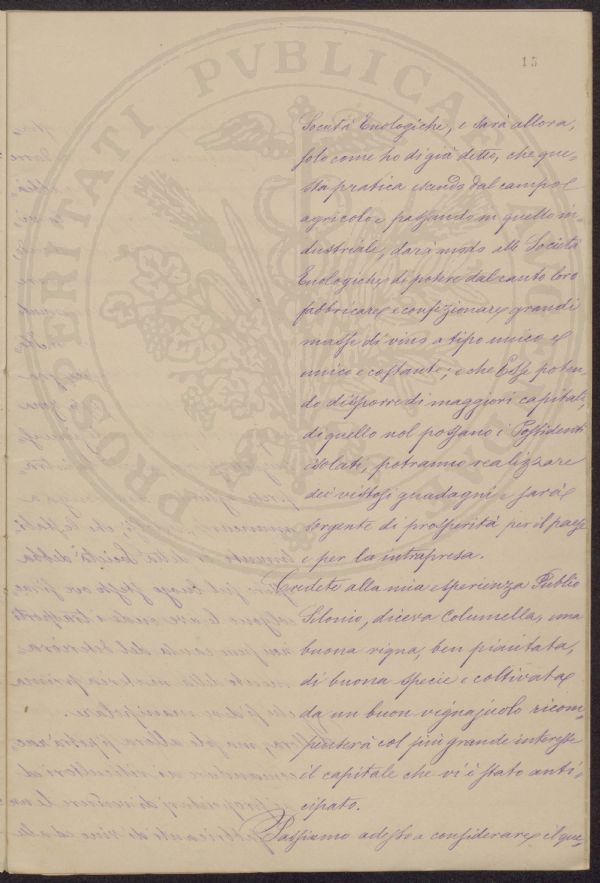 15
PROSPERITATI PVBLICAE AVGENDAE
Società Enologiche, e sarà allora,
solo come ho di già detto, che que-
sta pratica escendo dal campo
agricolo e passando in quello in-
dustriale, darà modo alle Società
Enologiche di potere dal canto loro
fabbricare e confezionare grandi
masse di vino a tipo unico e
unico e costante; e che Esse poten-
do disporre di maggiori capitali,
di quello nol possano i Possidenti
isolati, potranno realizzare
dei vistosi guadagni e sarà
sorgente di prosperità per il paese
e per la intrapresa.
Credete alla mia esperienza Publio
Silonio, diceva Columella, una
buona vigna, ben piantata,
di buona specie e coltivata
da un buon vignajuolo ricom-
penserà col più grande interesse
il capitale che vi è stato anti-
cipato.
Passiamo adesso a considerare il que-